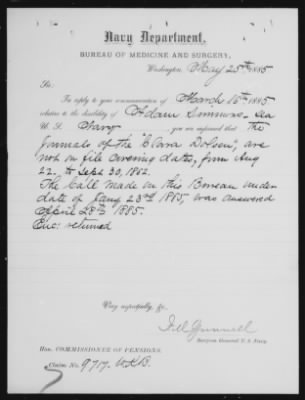 Navy Department,
BUREAU OF MEDICINE AND SURGERY,
Washington, May 25th 1885
Sir:
In reply to your communication of March 16th 1885
relative to the disability of Adam Simmons - Sea
U. S. Navy, you are informed that the
journals of the "Clara Dolsen", are
not on file covering dates, from Aug
22. to Sept 30, 1862.
The call made on this Bureau under
date of Jany 23rd 1885, was answered
April 28th 1885.
Enc: returned
Very respectfully, &c.
Surgeon General U. S. Navy.
Hon. COMMISSIONER OF PENSIONS.
Claim No. 9717. W.K.B.